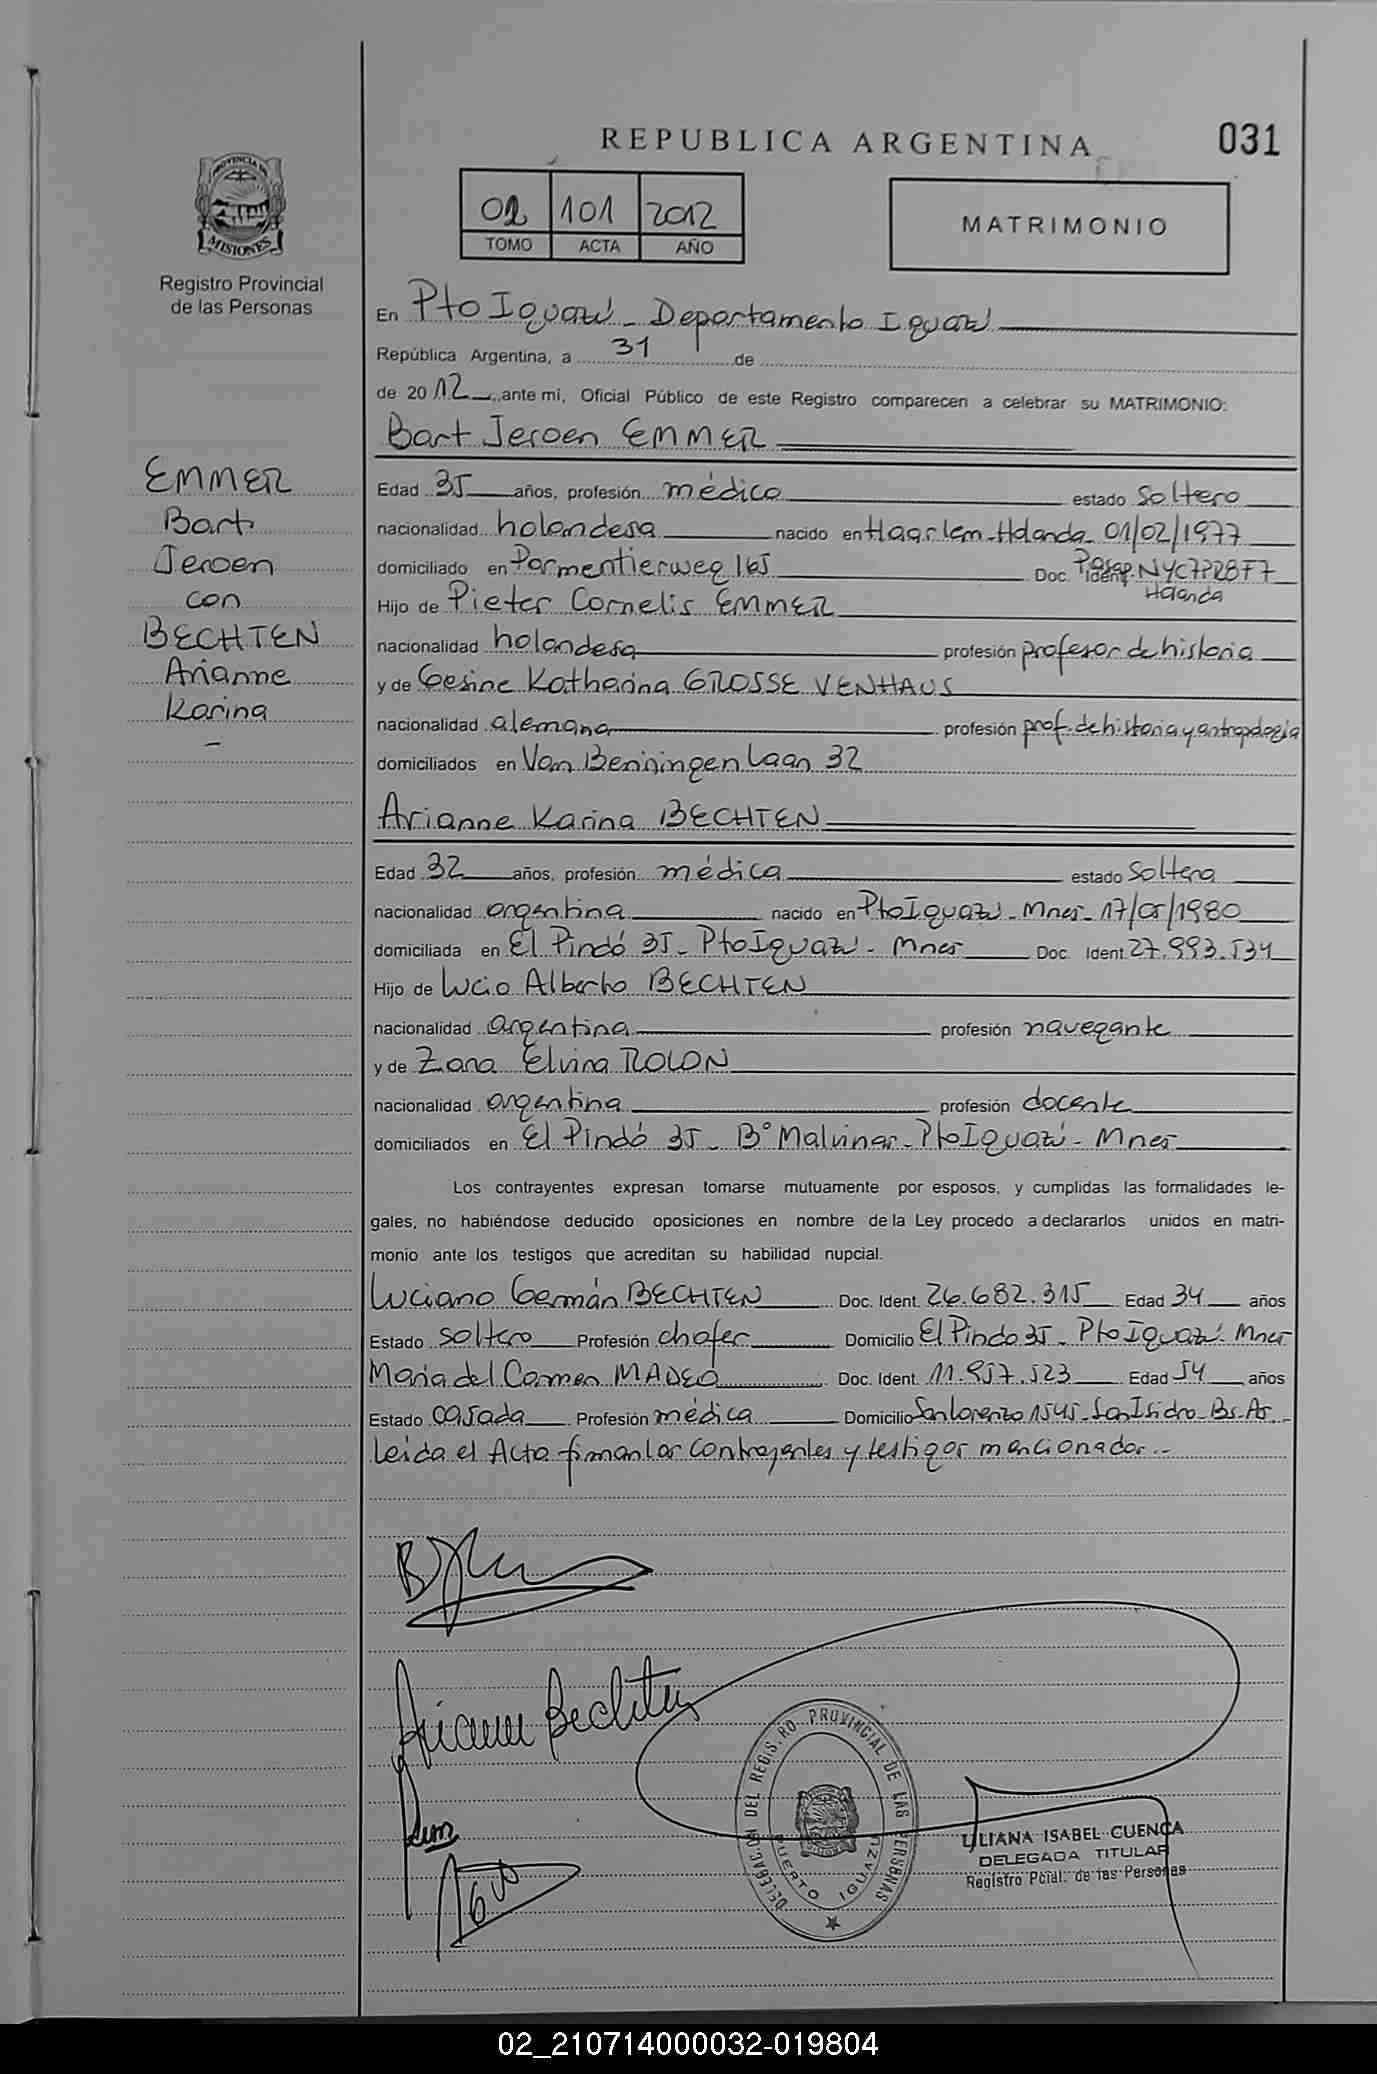 REPUBLICA ARGENTINA
031
PROVINCIA DE
MISIONES
Registro Provincial
de las Personas
02 101 2012
TOMO ACTA AÑO
MATRIMONIO
En Pto Iguazú - Departamento Iguazú
República Argentina, a 31 de
de 2012, ante mi, Oficial Público de este Registro comparecen a celebrar su MATRIMONIO:
Bart Jeroen EMMER
EMMER
Bart
Jeroen
con
BECHTEN
Arianne
Karina
Edad 35 años, profesión médico estado soltero
nacionalidad holandesa nacido en Haarlem - Holanda - 01/02/1977
domiciliado en Parmentierweg 165 Doc. Ident. Pasap. NYC7PR8F7
Holanda
Hijo de Pieter Cornelis EMMER
nacionalidad holandesa profesión profesor de historia
y de Gesine Katharina GROSSE VENHAUS
nacionalidad alemana profesión prof. de historia y antropología
domiciliados en Van Beniningen laan 32
Arianne Karina BECHTEN
Edad 32 años, profesión médica estado soltera
nacionalidad argentina nacido en Pto Iguazú - Mnes - 17/05/1980
domiciliada en El Pindó 35 - Pto Iguazú - Mnes Doc. Ident. 27.993.534
Hijo de Lucio Alberto BECHTEN
nacionalidad argentina profesión navegante
y de Zara Elvira ROLON
nacionalidad argentina profesión docente
domiciliados en El Pindó 35 - Bº Malvinas - Pto Iguazú - Mnes
Los contrayentes expresan tomarse mutuamente por esposos, y cumplidas las formalidades le-
gales, no habiéndose deducido oposiciones en nombre de la Ley procedo a declararlos unidos en matri-
monio ante los testigos que acreditan su habilidad nupcial.
Luciano Germán BECHTEN Doc. Ident. 26.682.315 Edad 34 años
Estado soltero Profesión chofer Domicilio El Pindo 35 - Pto Iguazú - Mnes
María del Carmen MADEO Doc. Ident. 11.957.523 Edad 54 años
Estado casada Profesión médica Domicilio San Lorenzo 1545 - San Isidro - Bs. As.
Leida el Acta firman los contrayentes y testigos mencionados.-
Arianne Bechten
DELEGACION DEL REGISTRO PROVINCIAL DE LAS PERSONAS
PUERTO IGUAZU
LILIANA ISABEL CUENCA
DELEGADA TITULAR
Registro Pcial. de las Personas
02_210714000032-019804